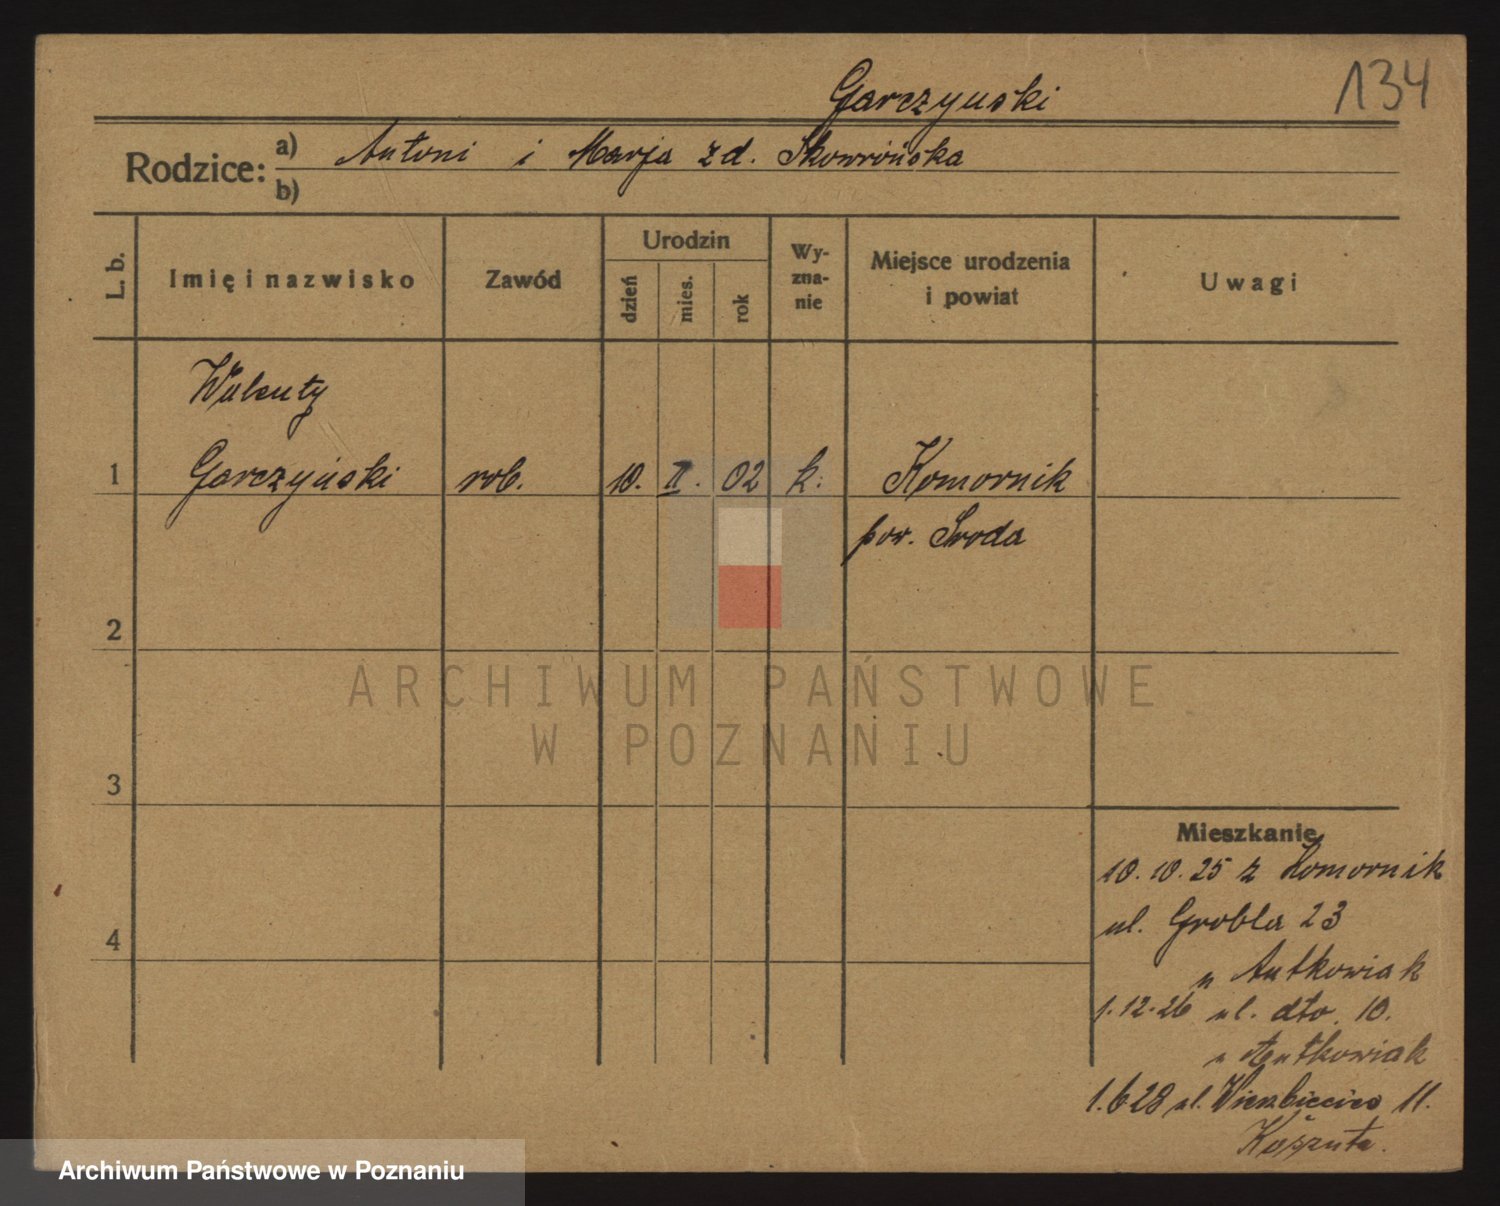 134
Garczynski
Rodzice: a) Antoni i Marja z d. Skowrońska
b)
L. b. Imię i nazwisko Zawód Urodzin dzień mies. rok Wyznanie Miejsce urodzenia i powiat Uwagi
Walenty
1 Garczyński rob. 10. II. 02 k. Komornik
pow. Sroda
2
ARCHIWUM PAŃSTWOWE
W POZNANIU
3
Mieszkanie
10. 10. 25 z Komornik
ul. Grobla 23
4
u Antkowiak
1.12.26 ul. dto. 10.
u Antkowiak
1.6 28 ul. 11.
Koszuta.
Archiwum Państwowe w Poznaniu